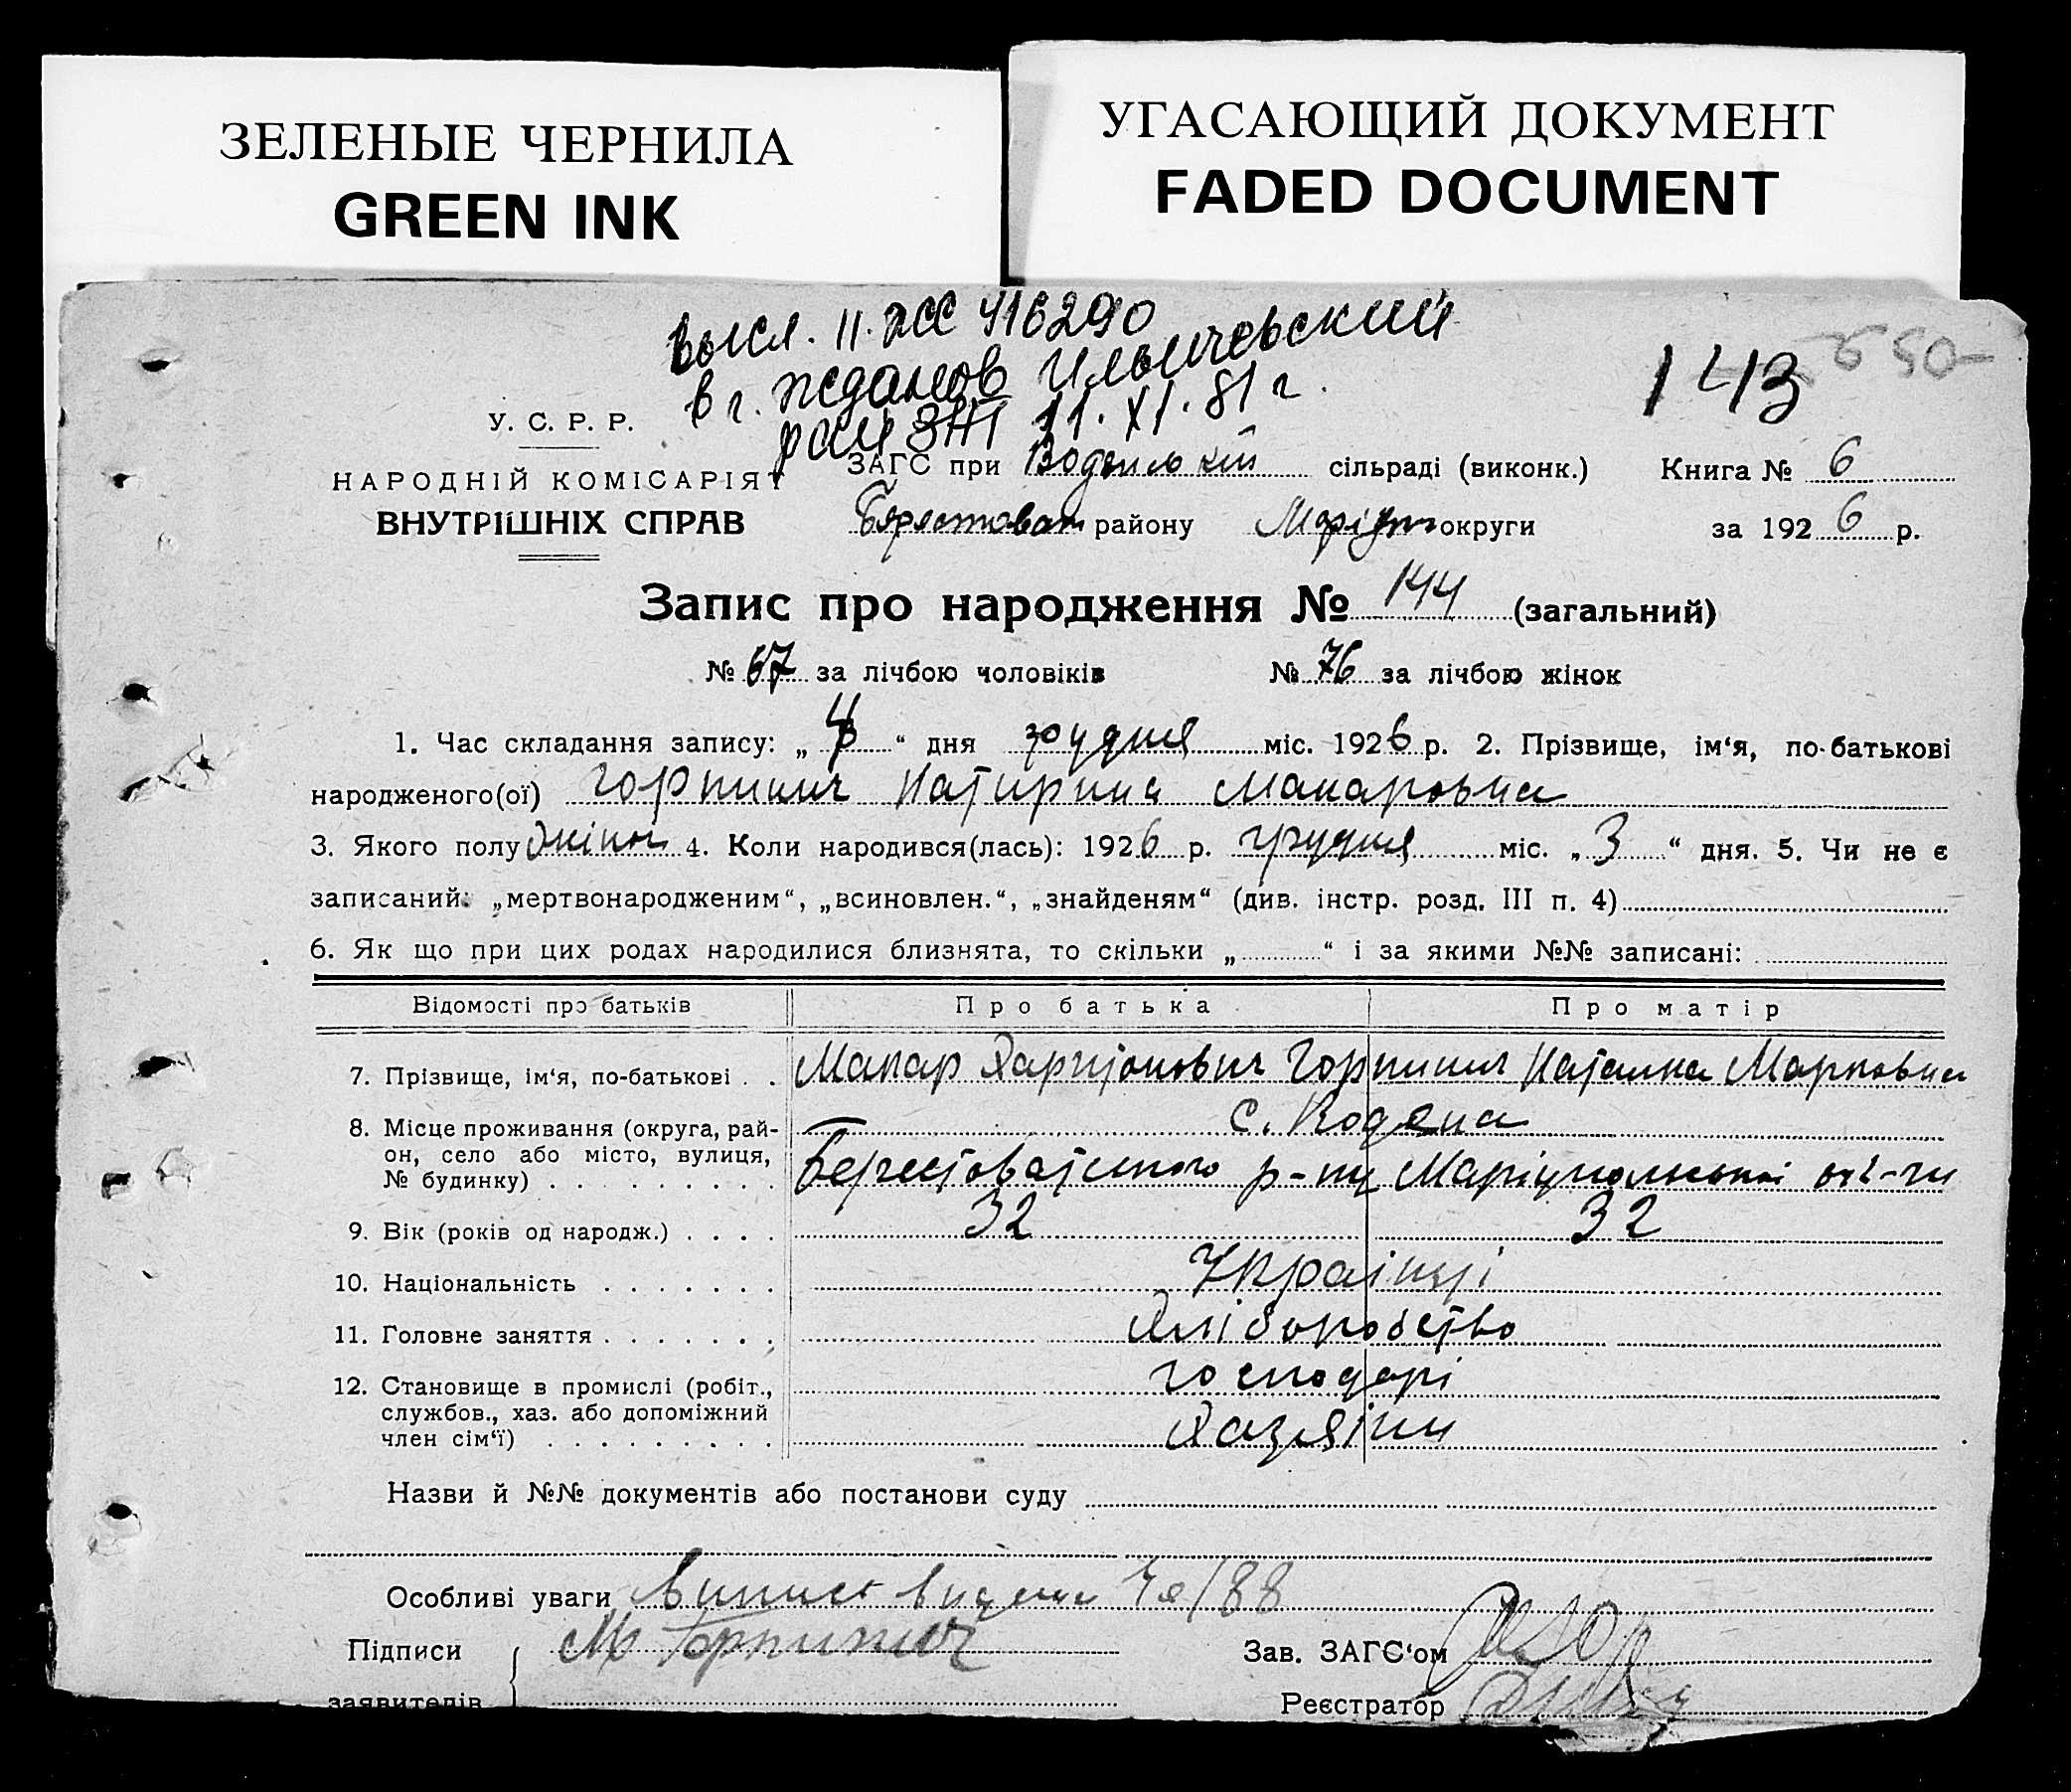 ЗЕЛЕНЫЕ ЧЕРНИЛА
GREEN INK
УГАСАЮЩИЙ ДОКУМЕНТ
FADED DOCUMENT
высл. II. ЖС 416290
в г. Жданов Ильичевский
рай ЗАГС 11. XI. 81 г.
143
У. С. Р. Р.
НАРОДНІЙ КОМІСАРІЯТ
ВНУТРІШНІХ СПРАВ
ЗАГС при Водянській сільраді (виконк.) Книга № 6
Берестоват району Маріуп округи за 1926 р.
Запис про народження № 144 (загальний)
№ 67 за лічбою чоловіків № 76 за лічбою жінок
1. Час складання запису: „ 4 “ дня грудня міс. 1926 р. 2. Прізвище, ім‘я, по-батькові
народженого(ої) Горпинич Катирина Макаровна
3. Якого полу жіноч 4. Коли народився(лась): 1926 р. грудня міс. „ 3 “ дня. 5. Чи не є
записаний: „мертвонародженим“, „всиновлен.“, „знайденям“ (див. інстр. розд. III п. 4)
6. Як що при цих родах народилися близнята, то скільки „ “ і за якими №№ записані:
Відомості про батьків Про батька Про матір
7. Прізвище, ім‘я, по-батькові . . Макар Харитонович Горпинич Наталка Марковна
8. Місце проживання (округа, рай-
он, село або місто, вулиця,
№ будинку)
с. Водяна
Берестоватського р-ну Маріупольської окр-ги
9. Вік (років од народж.) . . . . 32 32
10. Національність . . . . . . . Українці
11. Головне заняття . . . . . . . Хліборобство
12. Становище в промислі (робіт.,
службов., хаз. або допоміжний
член сім‘ї)
господарі
Хазяіни
Назви й №№ документів або постанови суду
Особливі уваги Випись видана
Підписи
заявителів
М Горпинич
Зав. ЗАГС‘ом
Реєстратор